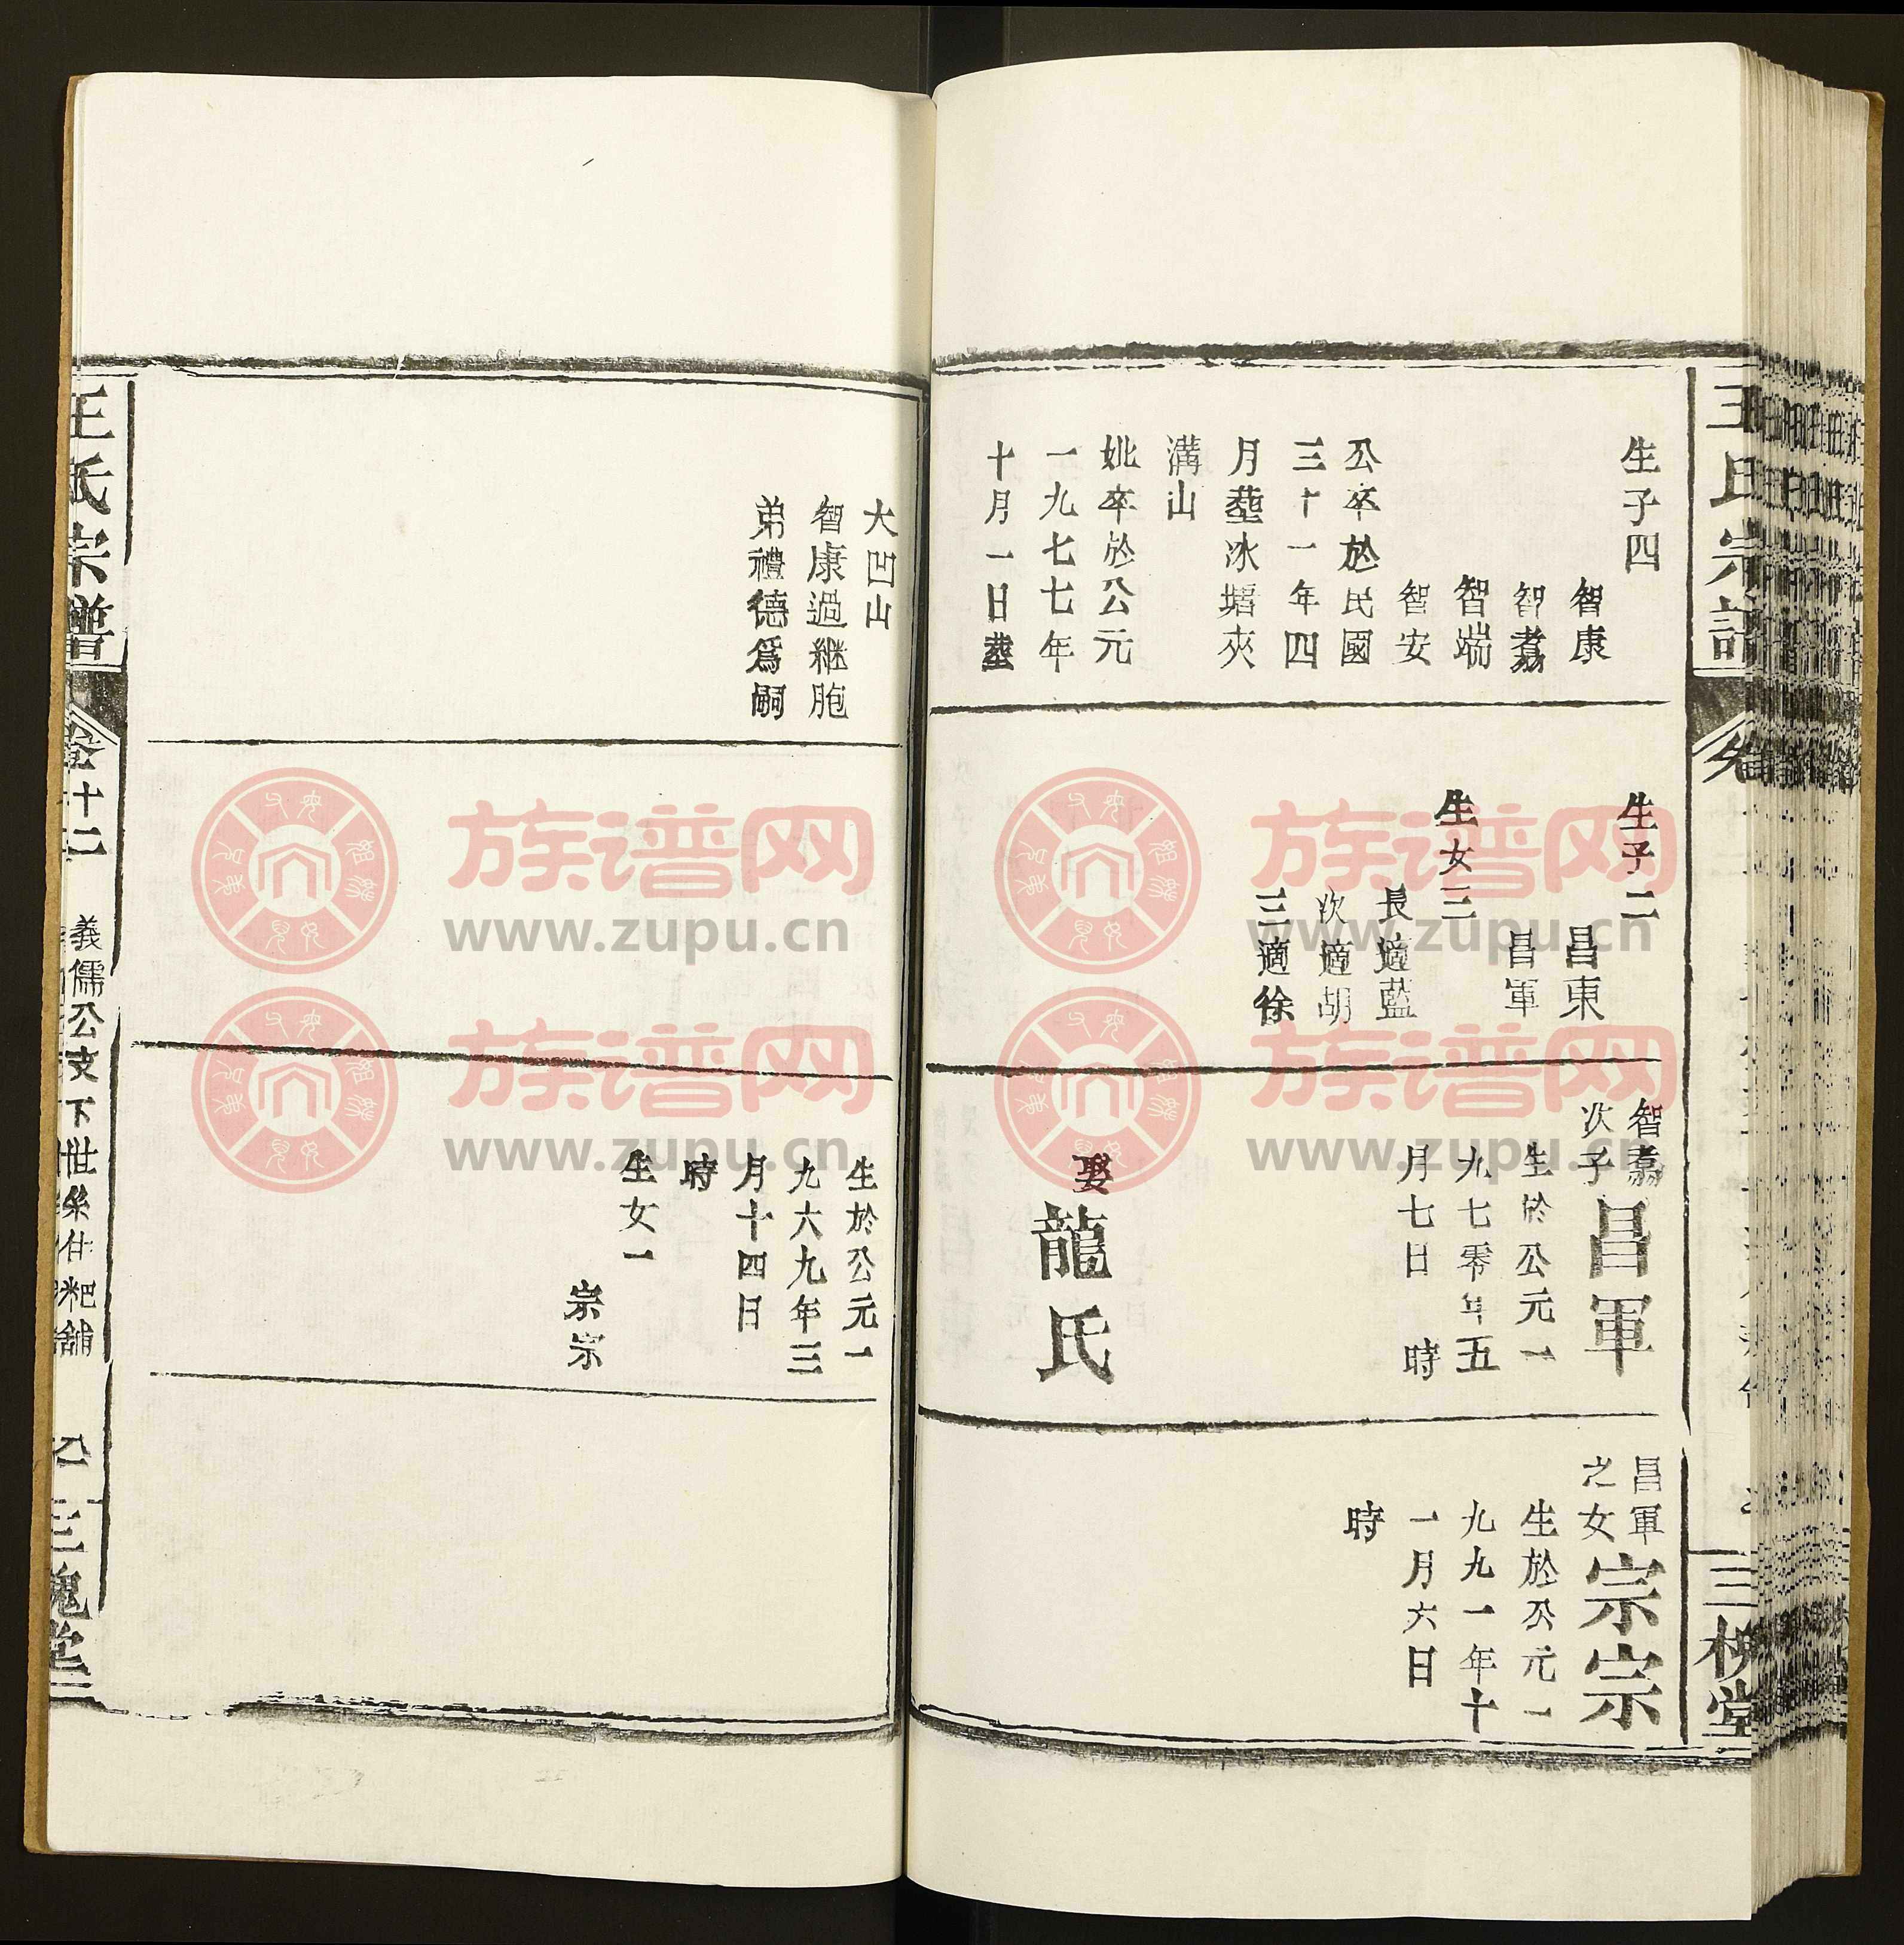 王氏宗譜
三槐堂
生子四
智康
智翥
智端
智安
公卒於民國
三十一年四
月塟冰塘夾
溝山
妣卒於公元
一九七七年
十月一日塟
生子二
昌東
昌軍
生女三
長適藍
次適胡
三適徐
智翥
次子
昌軍
生於公元一
九七零年五
月七日 時
娶
龍氏
昌軍
之女
宗宗
生於公元一
九九一年十
一月六日
時
大凹山
智康過継胞
弟禮德爲嗣
生於公元一
九六九年三
月十四日
時
生女一
宗宗
王氏宗譜
卷十二
義儒公支下世系仕粑舖
三槐堂
族谱网
www.zupu.cn
族谱网
www.zupu.cn
族谱网
www.zupu.cn
族谱网
www.zupu.cn